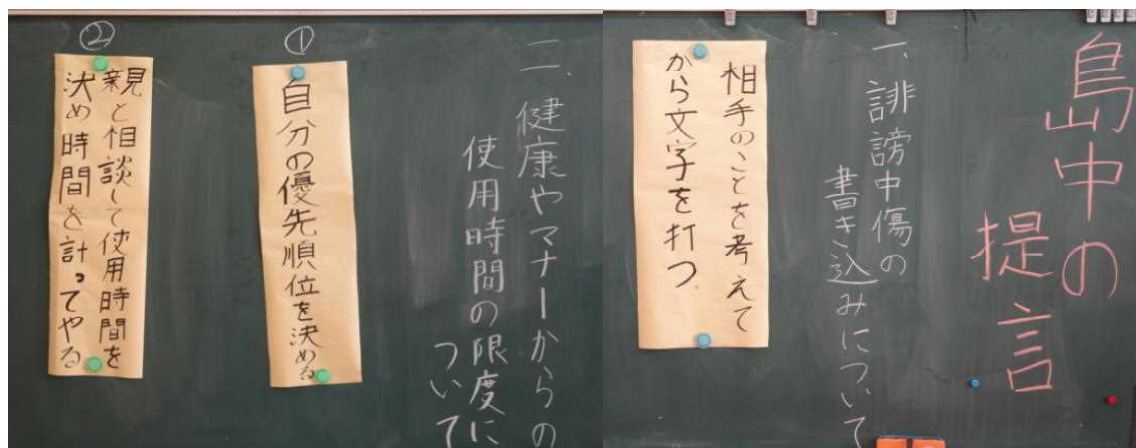 島中の
提言
一、誹謗中傷の
書き込みについて
相手のことを考えて
から文字を打つ。
二、健康やマナーからの
使用時間の限度に
ついて
①
自分の優先順位を決める
②
親と相談して使用時間を
決め時間を計ってやる